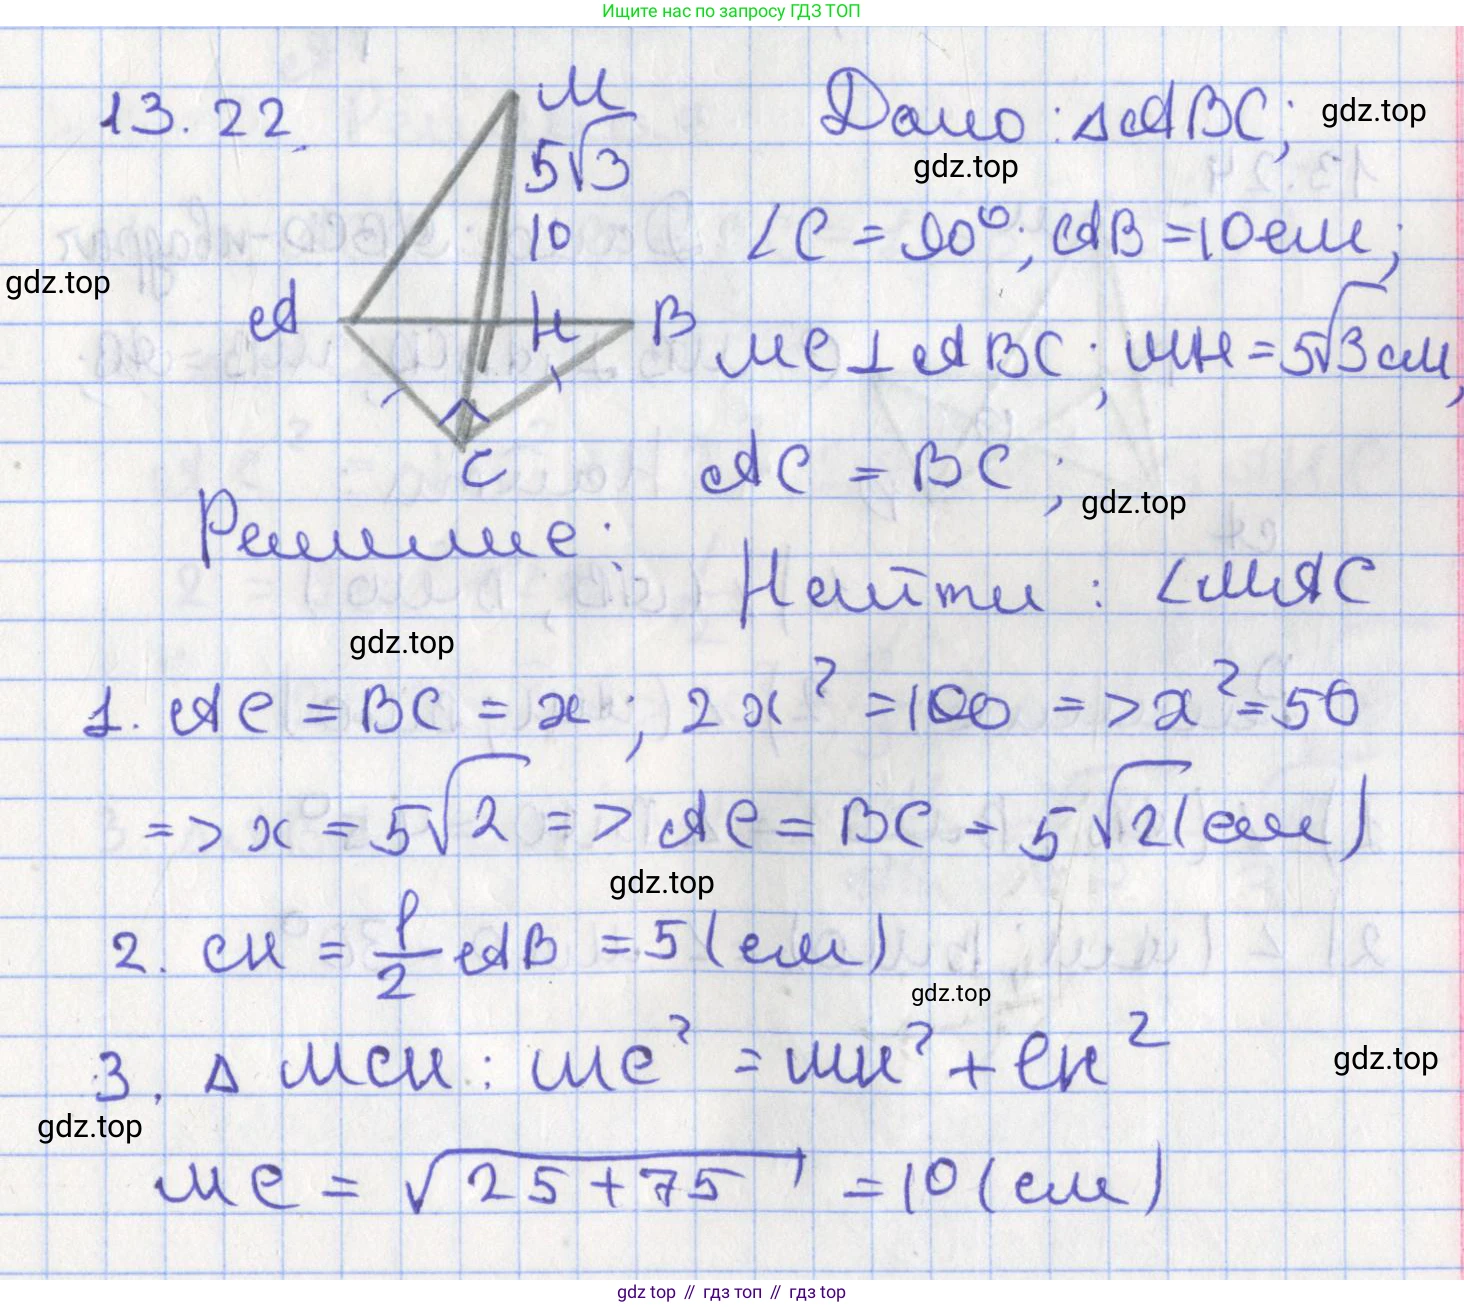 Ищите нас по запросу ГДЗ ТОП
13.22.
M
5√3
10
A
H
B
C
Дано: ΔABC;
gdz.top
gdz.top
∠C = 90°; AB = 10 см;
gdz.top
MC ⊥ ABC; MH = 5√3 см,
AC = BC;
gdz.top
Решение:
Найти: ∠MAC
gdz.top
1. AC = BC = x; 2x² = 100 => x² = 50
=> x = 5√2 => AC = BC = 5√2 (см)
gdz.top
2. CH = 1/2 AB = 5 (см)
gdz.top
3. Δ MCH: MC² = MH² + CH²
gdz.top
gdz.top
MC = √25 + 75 = 10 (см)
gdz top // гдз топ // гдз top